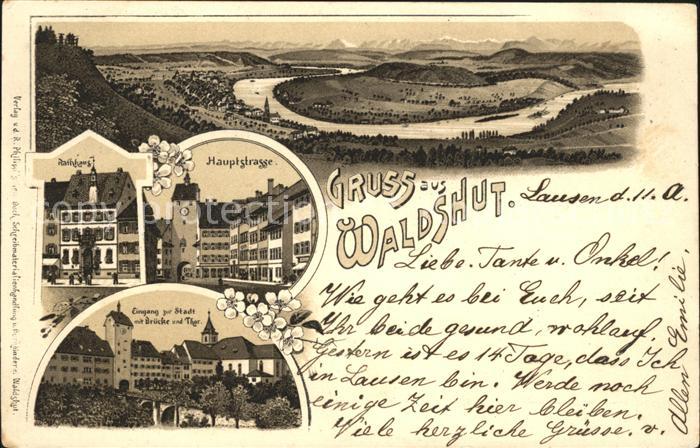 Rathhaus
Hauptstrasse.
GRUSS aus
WALDSHUT.
Eingang zur Stadt
mit Brücke und Thor.
Lausen d. 11. A
Liebe. Tante u. Onkel!
Wie geht es bei Euch, seit
Ihr beide gesund, wohlauf,
Gestern ist es 14 Tage, dass Ich
in Lausen bin. Werde noch
einige Zeit hier bleiben.
Viele herzliche Grüsse, v.
Allen Emilie
Verlag v. d. R. Philipp's Buch, Schreibmaterialienhandlung u. Waldshut.